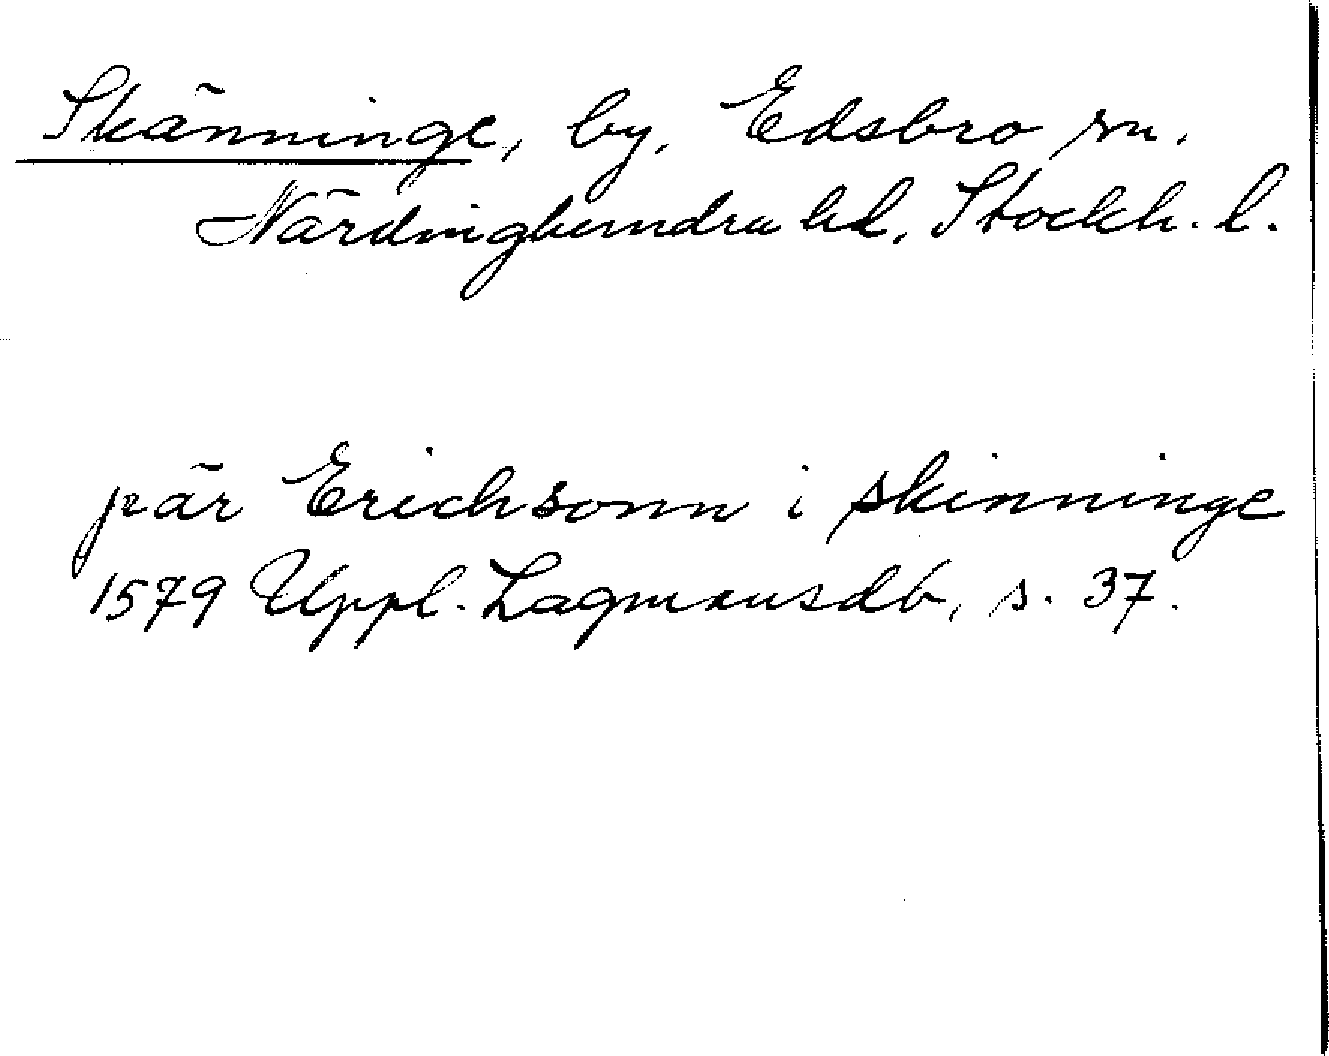 Skänninge, by, Edsbro sn.
Närdinghundra hd, Stockh. l.
pär Erichsonn i skinninge
1579 Uppl. Lagmansdb, s. 37.